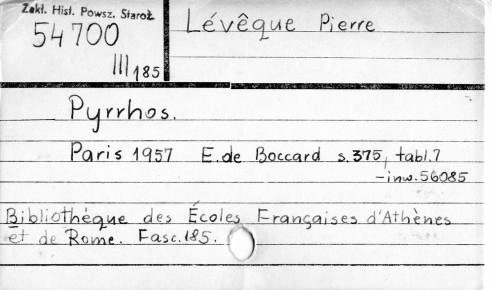 Zakł. Hist. Powsz. Staroż.
54700
III 185
Lévêque Pierre
Pyrrhos.
Paris 1957 E. de Boccard s. 375, tabl. 7
-inw. 56085
Bibliothèque des Écoles Françaises d'Athènes
et de Rome. Fasc. 185.